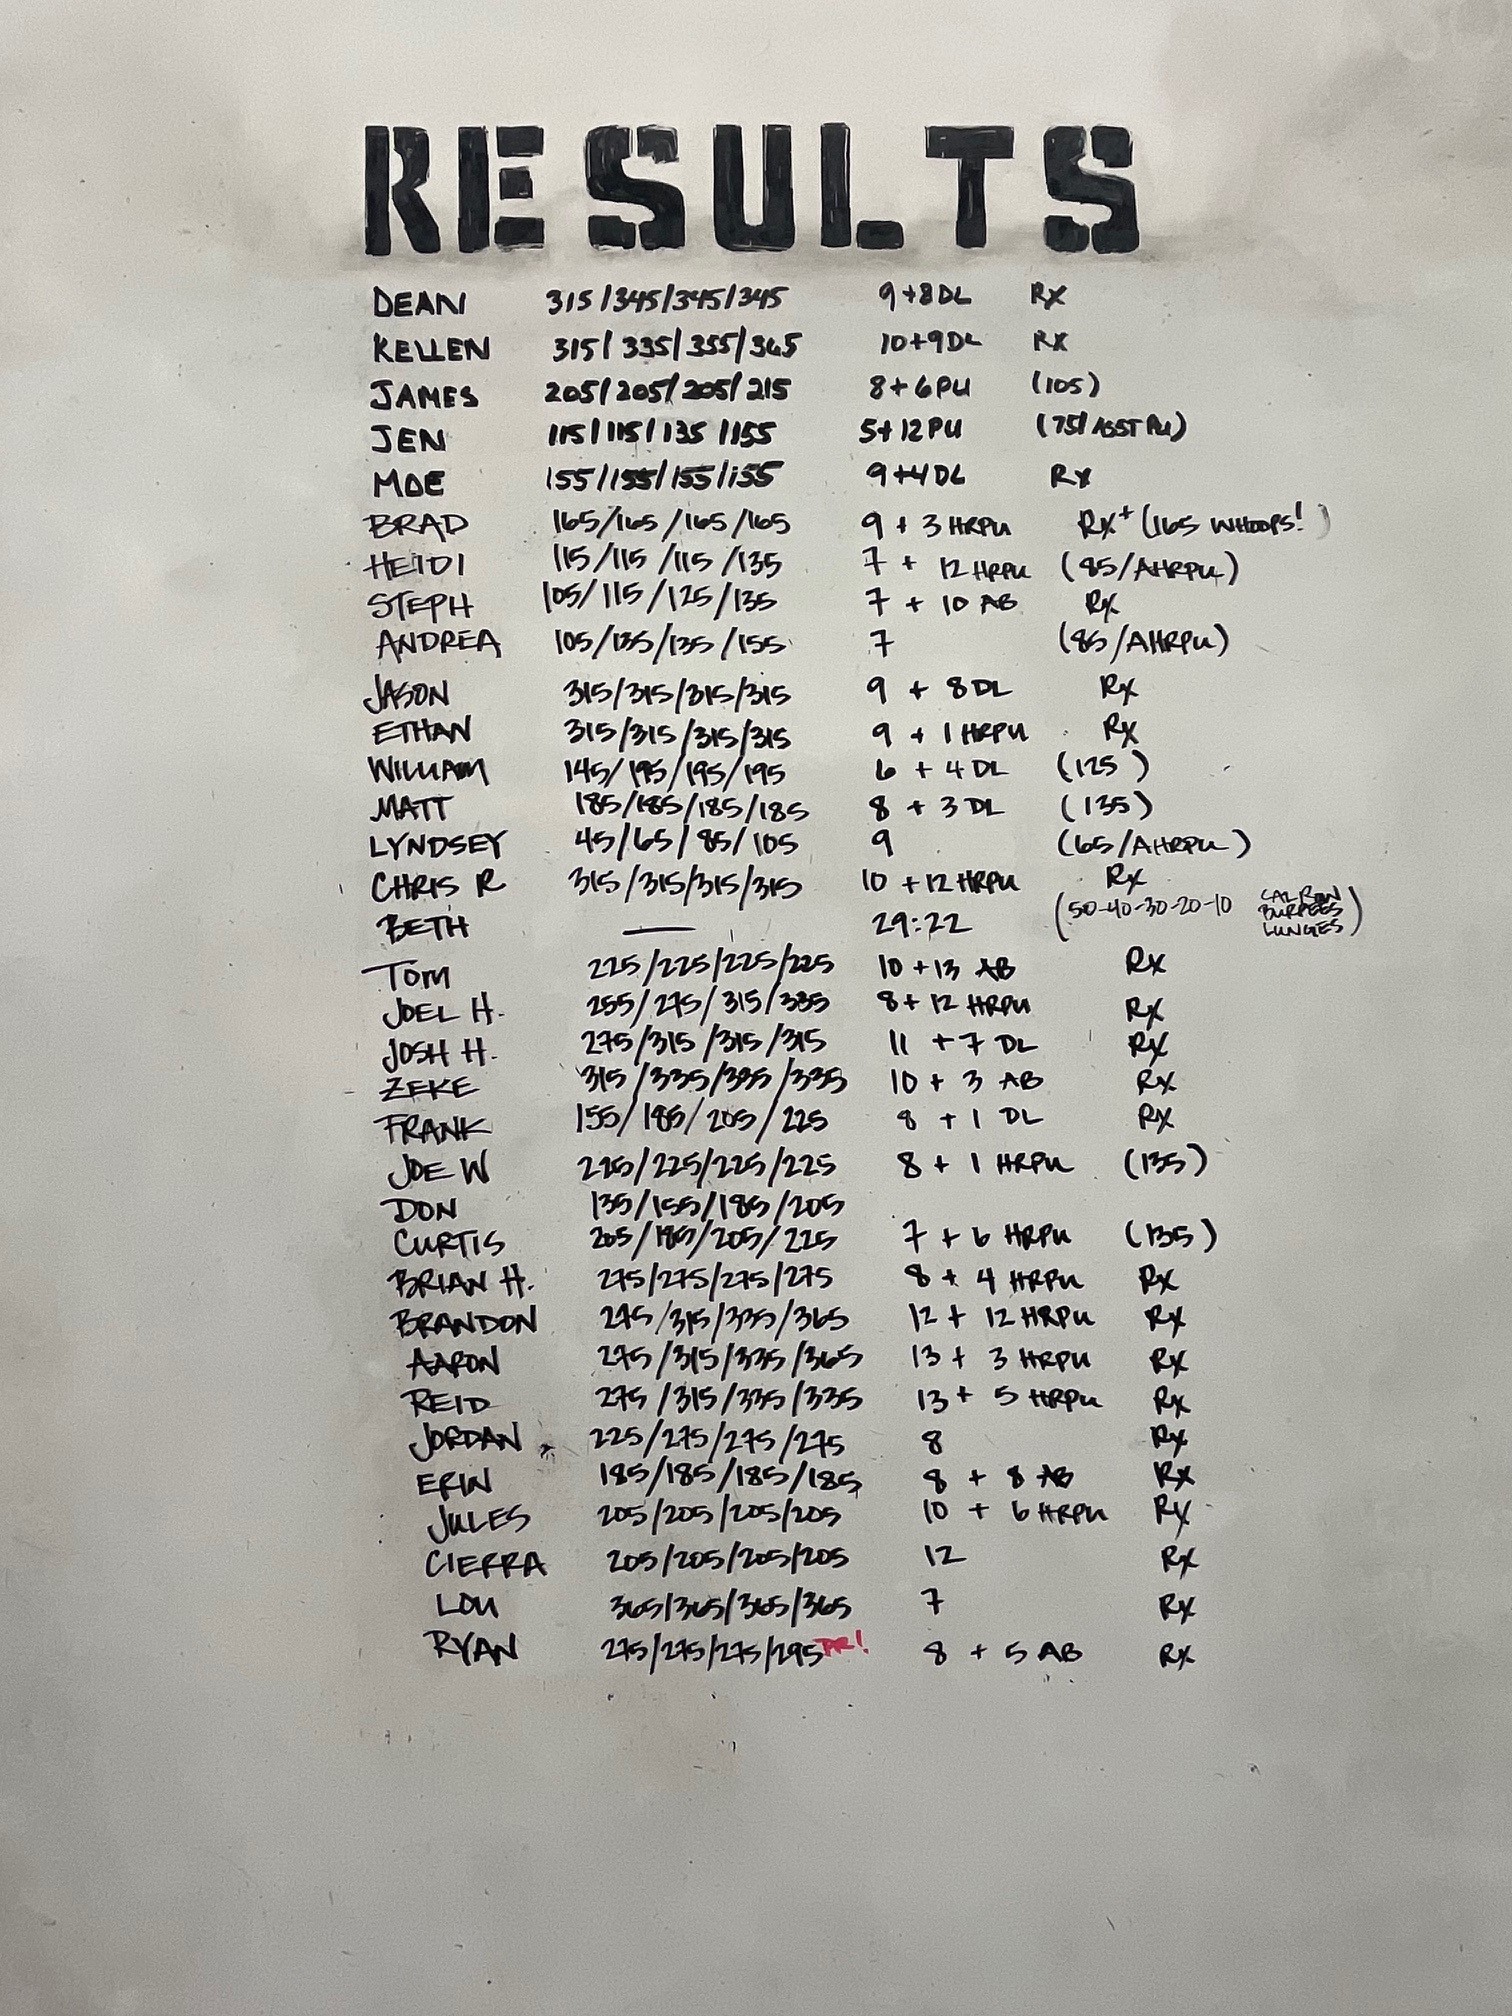 RESULTS
DEAN 315/345/345/345 9+8DL RX
KELLEN 315/335/355/365 10+9DL RX
JAMES 205/205/205/215 8+6PU (105)
JEN 115/115/135/155 5+12PU (75/ASST PU)
MOE 155/155/155/155 9+4DL RX
BRAD 165/165/165/165 9 + 3 HRPU RX+ (165 WHOOPS!)
HEIDI 115/115/115/135 7 + 12 HRPU (85/AHRPU)
STEPH 105/115/125/135 7 + 10 AB RX
ANDREA 105/135/135/155 7 (85/AHRPU)
JASON 315/315/315/315 9 + 8 DL RX
ETHAN 315/315/315/315 9 + 1 HRPU RX
WILLIAM 145/195/195/195 6 + 4 DL (125)
MATT 185/185/185/185 8 + 3 DL (135)
LYNDSEY 45/65/85/105 9 (65/AHRPU)
CHRIS R 315/315/315/315 10 + 12 HRPU RX
BETH — 29:22 (50-40-30-20-10 CAL ROW BURPEES LUNGES)
TOM 225/225/225/225 10 + 13 AB RX
JOEL H. 255/275/315/335 8 + 12 HRPU RX
JOSH H. 275/315/315/315 11 + 7 DL RX
ZEKE 315/335/335/335 10 + 3 AB RX
FRANK 155/185/205/225 8 + 1 DL RX
JOE W 225/225/225/225 8 + 1 HRPU (135)
DON 135/155/185/205
CURTIS 205/185/205/225 7 + 6 HRPU (135)
BRIAN H. 275/275/275/275 8 + 4 HRPU RX
BRANDON 275/315/335/365 12 + 12 HRPU RX
AARON 275/315/335/365 13 + 3 HRPU RX
REID 275/315/335/335 13 + 5 HRPU RX
JORDAN 225/275/275/275 8 RX
ERIN 185/185/185/185 8 + 8 AB RX
JULES 205/205/205/205 10 + 6 HRPU RX
CIERRA 205/205/205/205 12 RX
LOU 365/365/365/365 7 RX
RYAN 275/275/275/295 PR! 8 + 5 AB RX